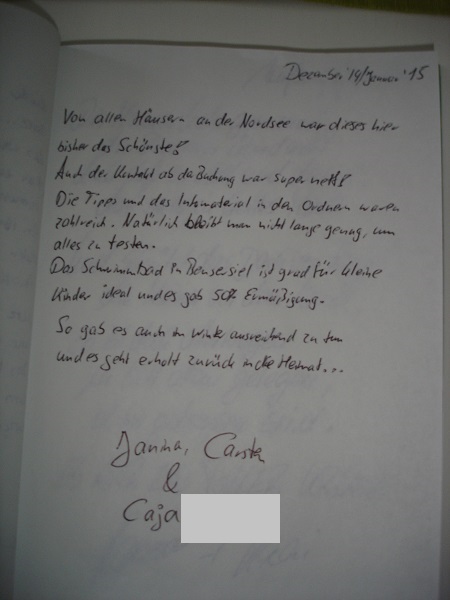 Dezember '14/Januar '15
Von allen Häusern an der Nordsee war dieses hier
bisher das Schönste!
Auch der Kontakt ab der Buchung war super nett!
Die Tipps und das Infomaterial in den Ordnern waren
zahlreich. Natürlich bleibt man nicht lange genug, um
alles zu testen.
Das Schwimmbad in Bensersiel ist grad für kleine
Kinder ideal und es gab 50% Ermäßigung.
So gab es auch im Winter ausreichend zu tun
und es geht erholt zurück in die Heimat...
Janina, Carsten
&
Caja